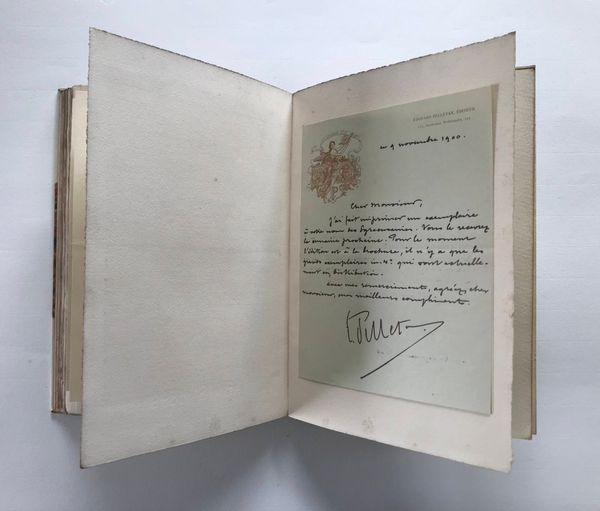 ÉDOUARD PELLETAN, ÉDITEUR
125, Boulevard St-Germain, 125
ce 9 novembre 1900.
Cher Monsieur,
J'ai fait imprimer un exemplaire
à votre nom des Syracusaines. Vous le recevrez
la semaine prochaine. Pour le moment
l'édition est à la brochure, il n'y a que les
grands exemplaires in-4º qui sont actuelle-
ment en distribution.
Avec mes remerciements, agréez, cher
monsieur, mes meilleurs compliments.
E. Pelletan